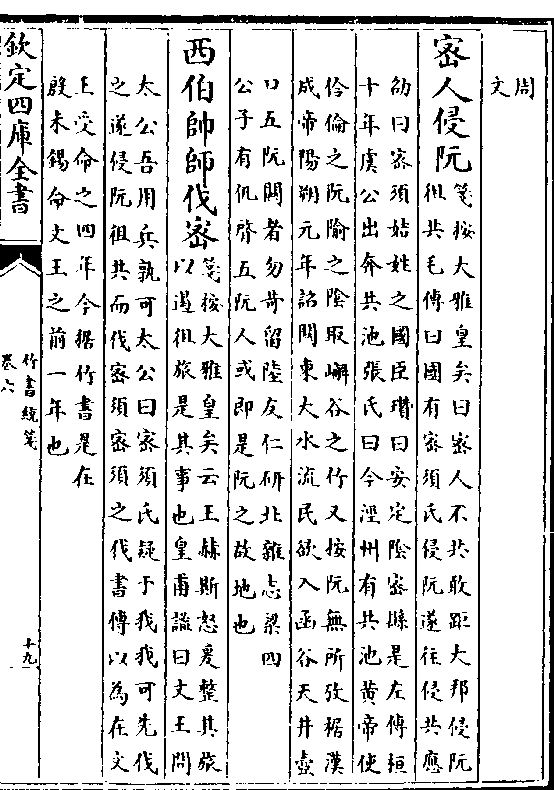 周
文
密人侵阮
箋按大雅皇矣曰密人不共敢距大邦侵阮
徂共毛傳曰國有密須氏侵阮遂往侵共應
劭曰密須姞姓之國臣瓚曰安定陰密縣是左傳桓
十年虞公出奔共池張氏曰今涇州有共池黃帝使
伶倫之阮隃之陰取嶰谷之竹又按阮無所攷据漢
成帝陽朔元年詔關東大水流民欲入函谷天井壺
口五阮關者勿苛留陸友仁研北雜志梁四
公子有仉䏿五阮人或即是阮之故地也
西伯帥師伐密
箋按大雅皇矣云王赫斯怒爰整其旅
以遏徂旅是其事也皇甫謐曰文王問
太公吾用兵孰可太公曰密須氏疑于我我可先伐
之遂侵阮徂共而伐密須密須之伐書傳以為在文
王受命之四年今据竹書是在
殷未錫命文王之前一年也
欽定四庫全書
竹書統箋
卷六
十九